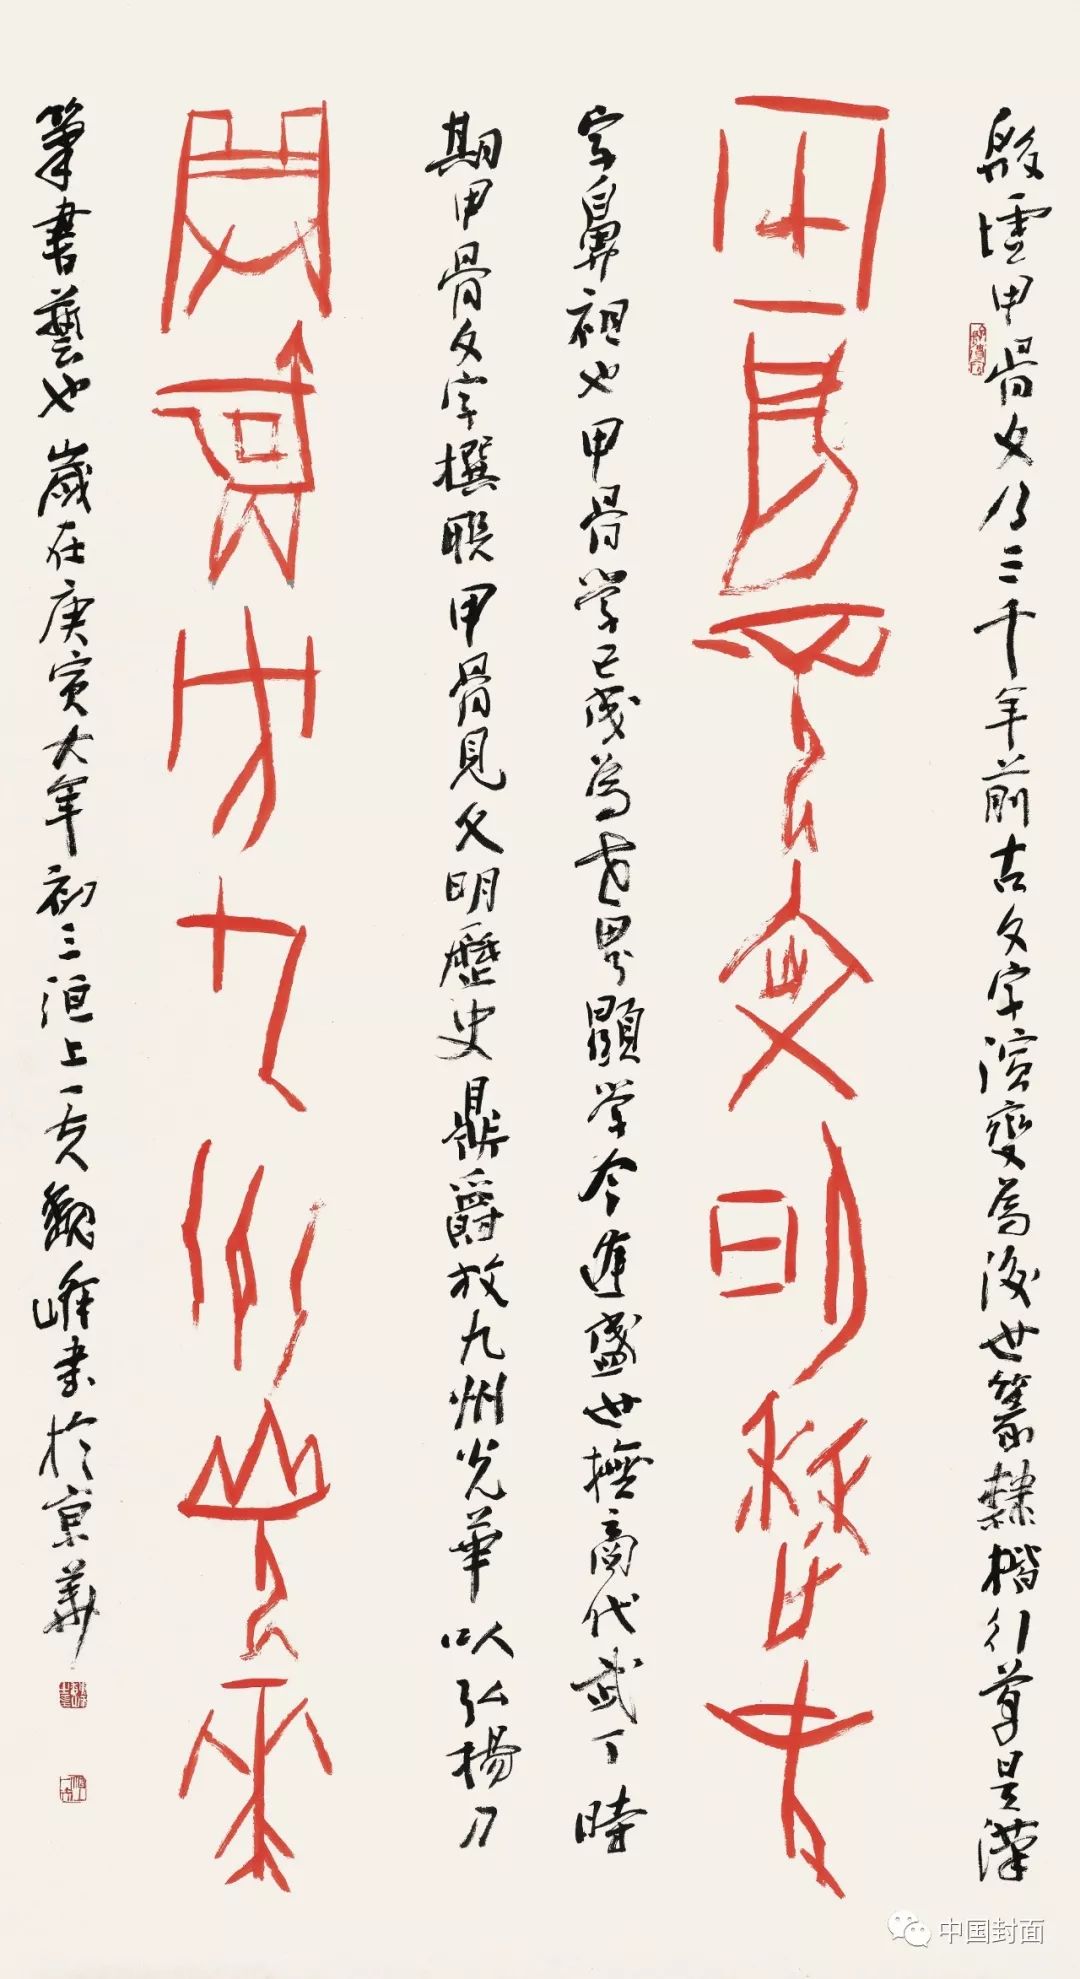 殷墟甲骨文乃三千年前古文字演變為後世篆隸楷行草是漢
甲骨見文明歷史
字鼻祖也甲骨學已成為世界顯學今逢盛世撫商代武丁時
期甲骨文字撰聯甲骨見文明歷史鼎爵放九州光華以弘揚刀
鼎爵放九州光華
筆書藝也歲在庚寅大年初三洹上一夫魏峰書於京華
中国封面